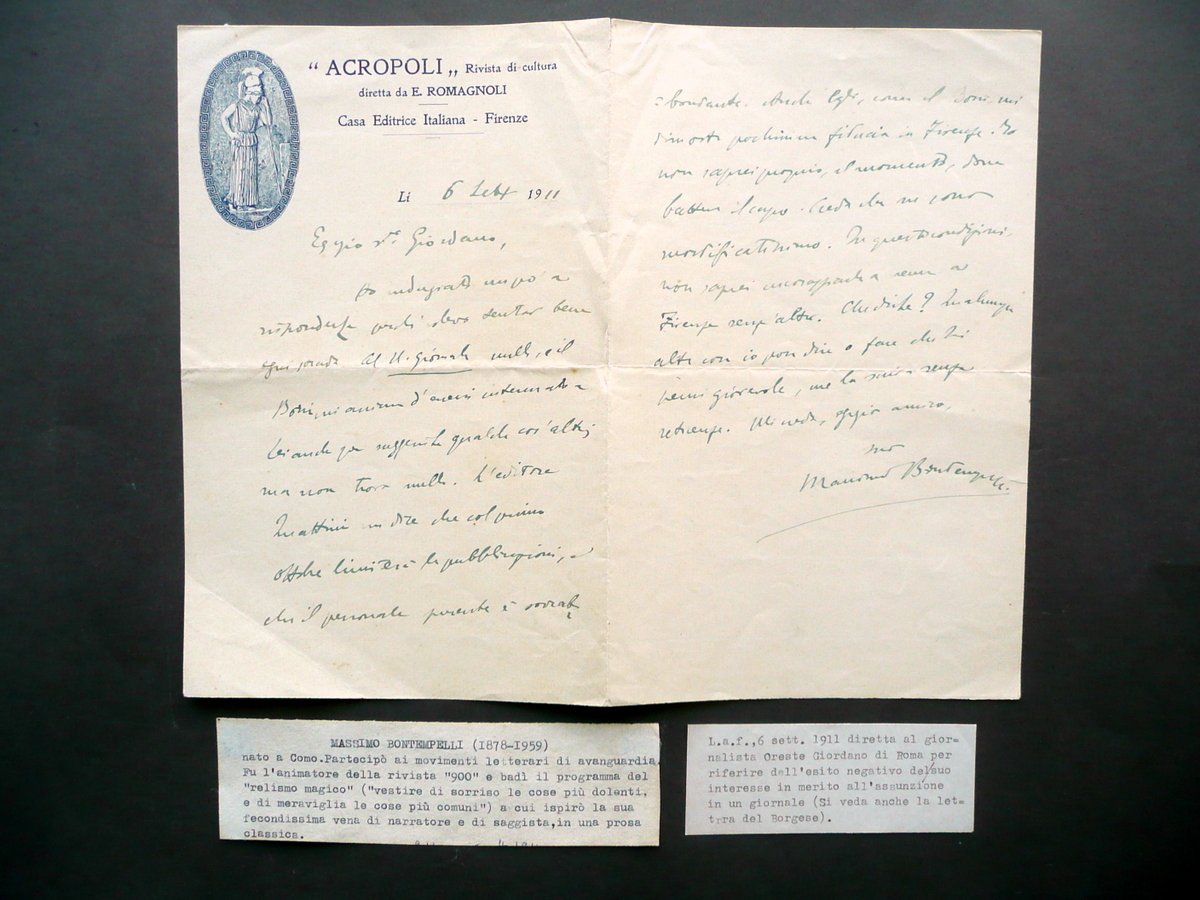 “ ACROPOLI „ Rivista di cultura
diretta da E. ROMAGNOLI
Casa Editrice Italiana - Firenze
Li 6 Sett 1911
Egregio Sr. Giordano,
Ho indugiato un po' a
risponderle
ogni Al N. Giornale nulla, e il
Boni,
Lei anche per suggerirle qualche cos'altro,
ma non trova nulla. L'editore
Mattini mi dice che col primo
ottobre limiterà le pubblicazioni, e
che il personale presente è sovrab=
=bondante. Anche Egli, come il Boni, mi
dimostra pochissima fiducia in Firenze. Io
non saprei proprio, al momento, dove
battere il capo. Creda che ne sono
mortificatissimo. In queste condizioni,
non saprei incoraggiarla a venire a
Firenze senz'altro. Che dirle? Qualunque
altra cosa io possa dire o fare che Le
giovevole, me la scriva senza
reticenze. Mi creda, egregio amico,
suo
Massimo Bontempelli.
MASSIMO BONTEMPELLI (1878-1959)
nato a Como.Partecipò ai movimenti letterari di avanguardia.
Fu l'animatore della rivista "900" e badì il programma del
"relismo magico" ("vestire di sorriso le cose più dolenti,
e di meraviglia le cose più comuni") a cui ispirò la sua
fecondissima vena di narratore e di saggista,in una prosa
classica.
L.a.f.,6 sett. 1911 diretta al gior=
nalista Oreste Giordano di Roma per
riferire dell'esito negativo del/suo
interesse in merito all'assunzione
in un giornale (Si veda anche la let=
trra del Borgese).